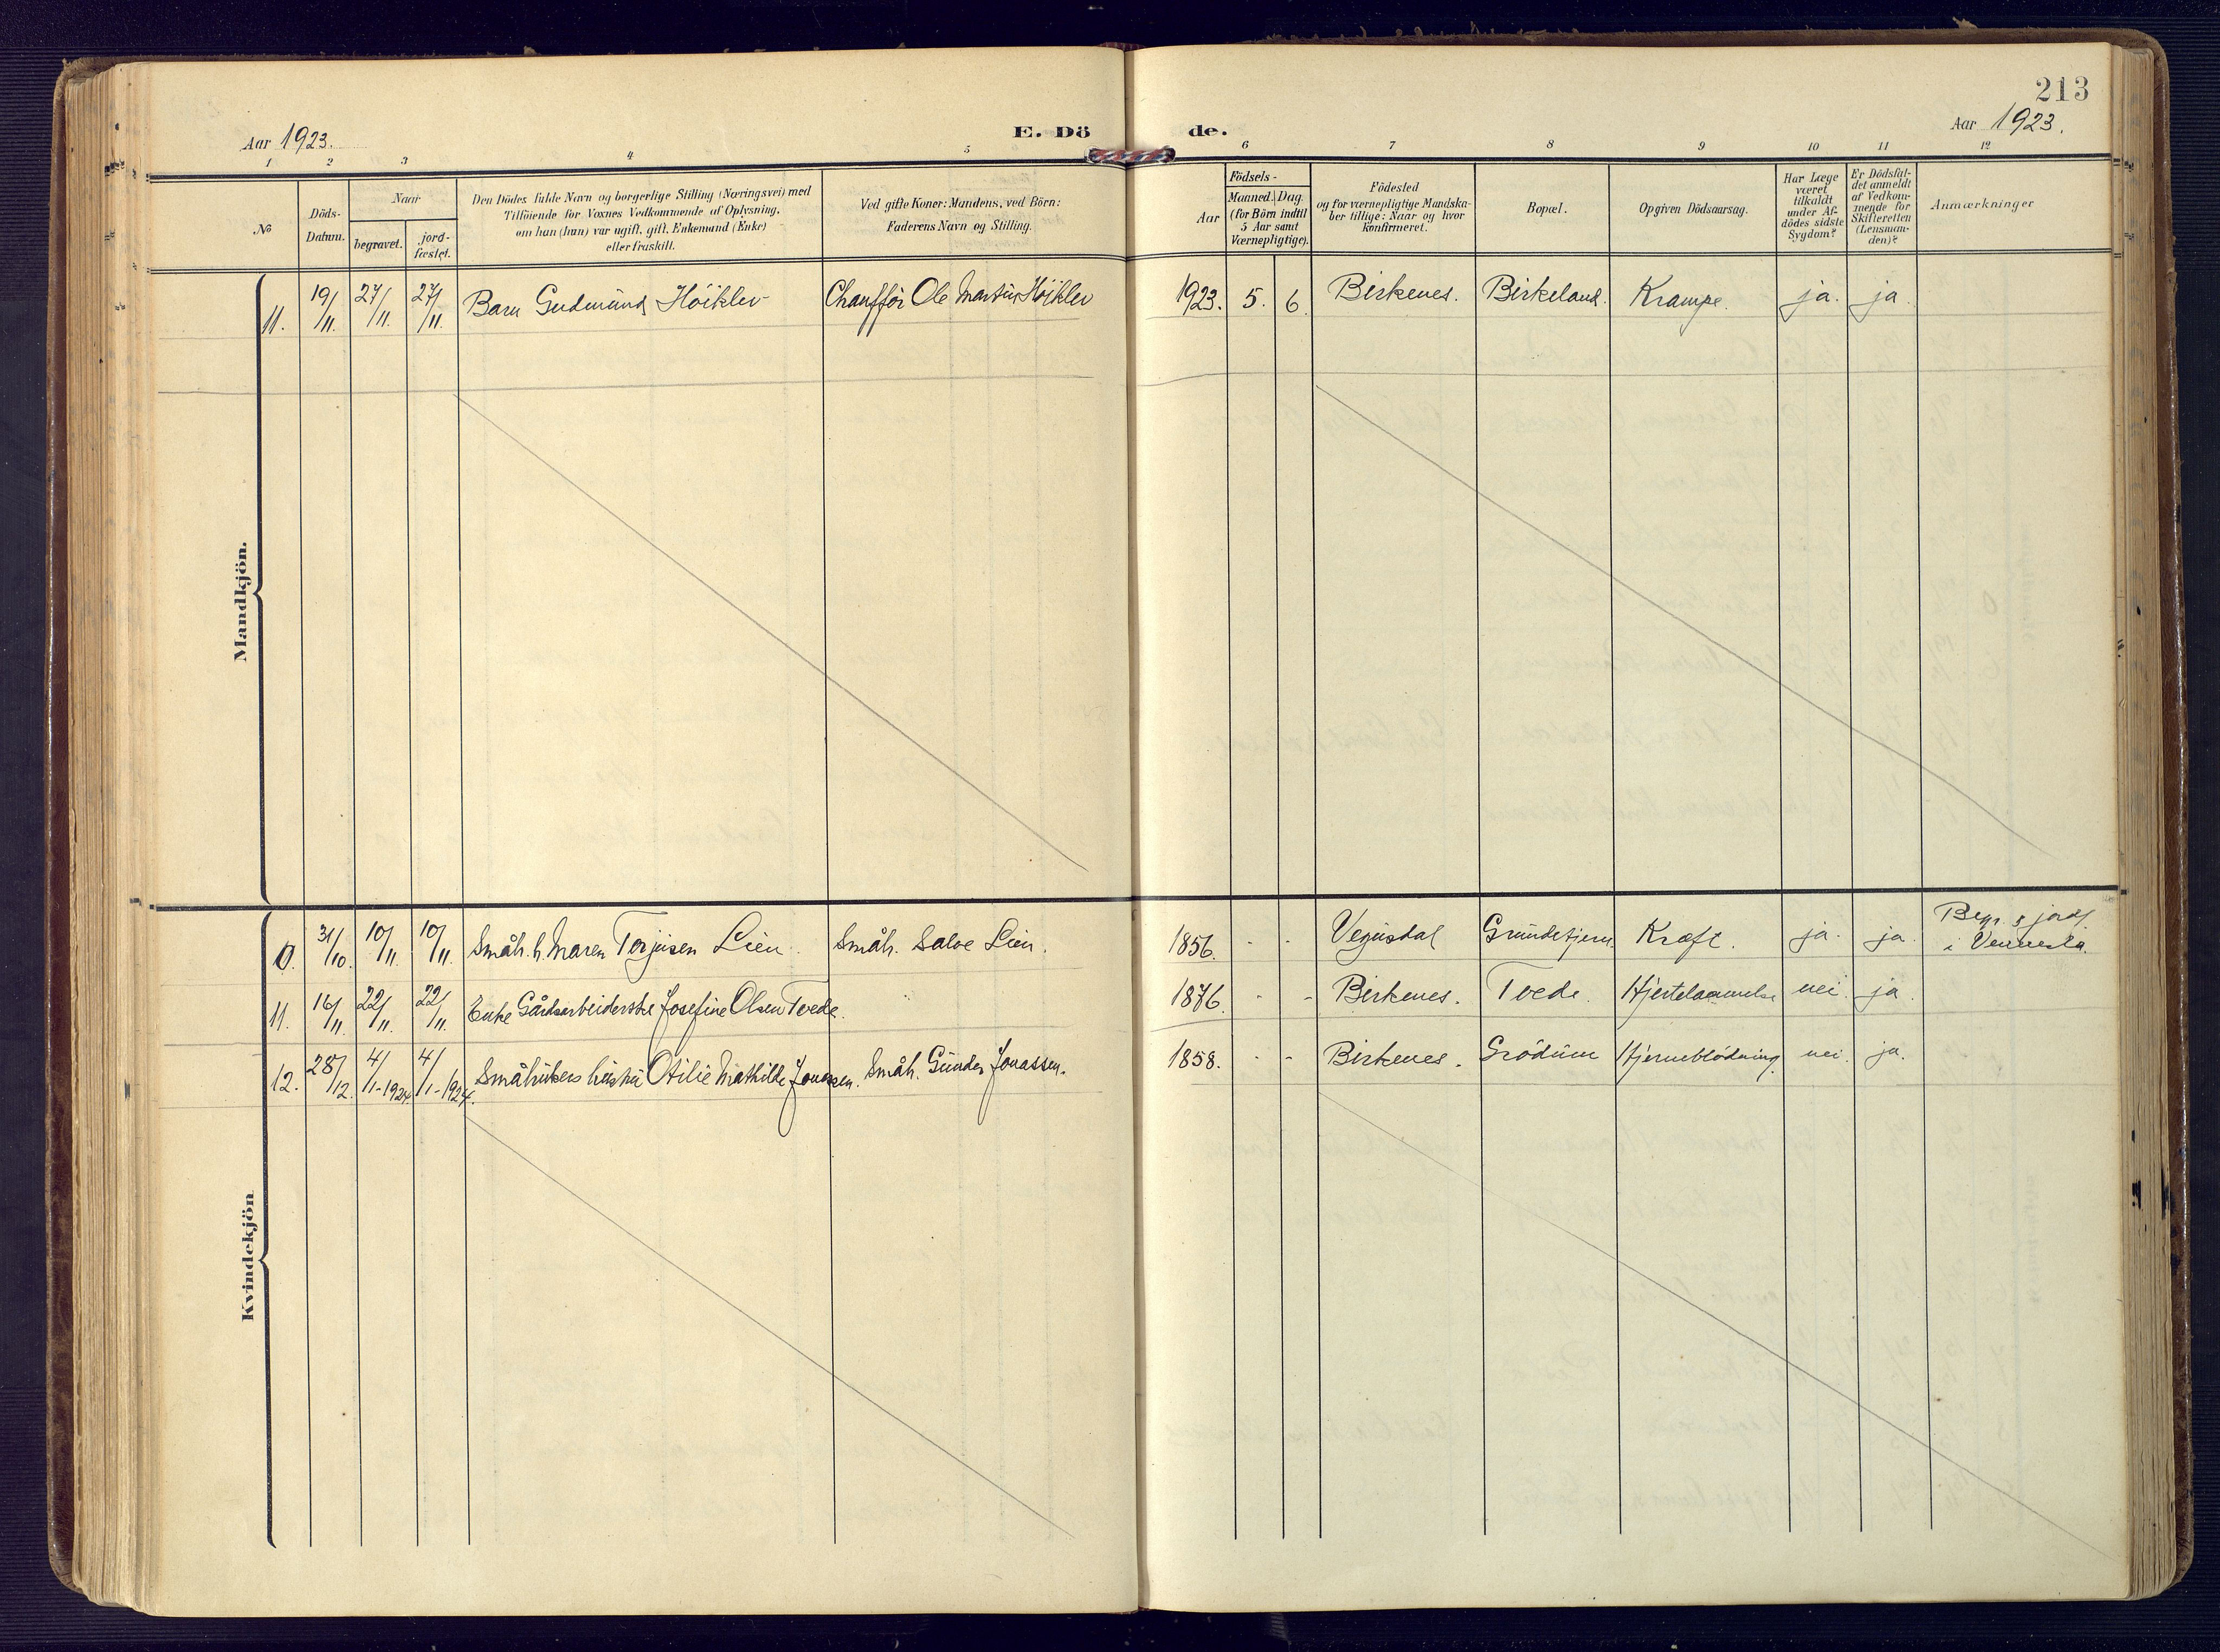 213
Aar 1923. E. Dö de. Aar 1923.
1 2 3 4 5 6 7 8 9 10 11 12
№
Döds-
Datum.
Naar
begravet.
jord-
fæstet.
Den Dödes fulde Navn og borgerlige Stilling (Næringsvei) med
Tilföiende for Voxnes Vedkommende af Oplysning,
om han (hun) var ugift, gift, Enkemand (Enke)
eller fraskilt.
Ved gifte Koner: Mandens, ved Börn:
Faderens Navn og Stilling.
Födsels-
Aar
Maaned. Dag.
(for Börn indtil
5 Aar samt
Værnepligtige).
Födested
og for værnepligtige Mandska-
ber tillige: Naar og hvor
konfirmeret.
Bopæl.
Opgiven Dödsaarsag.
Har Læge
været
tilkaldt
under Af-
dödes sidste
Sygdom?
Er Dödsfal-
det anmeldt
af Vedkom-
mende for
Skifteretten
(Lensman-
den)?
Anmærkninger
Mandkjön.
11. 19/11. 27/11. 27/11. Barn Gudmund Höiklev Chaufför Ole Martin Höiklev 1923. 5. 6. Birkenes. Birkeland. Krampe. ja. ja.
Kvindekjön
31/10. 10/11. 10/11. Småbr. h. Maren Torjusen Lien. Småbr. Salve Lien. 1856. - - Vegusdal Grundetjern Kræft. ja. ja. Begr. & jordf.
i Vennesla.
11. 16/11. 22/11. 22/11. Enke Gårdsarbeiderske Josefine Olsen Tvede. 1876. - - Birkenes. Tvede. Hjertelammelse nei. ja.
12. 28/12. 4/1-1924. 4/1-1924. Småbrukers hustru Otilie Mathilde Jonassen. Småbr. Gunder Jonassen. 1858. - - Birkenes. Grödum Hjerneblödning. nei. ja.